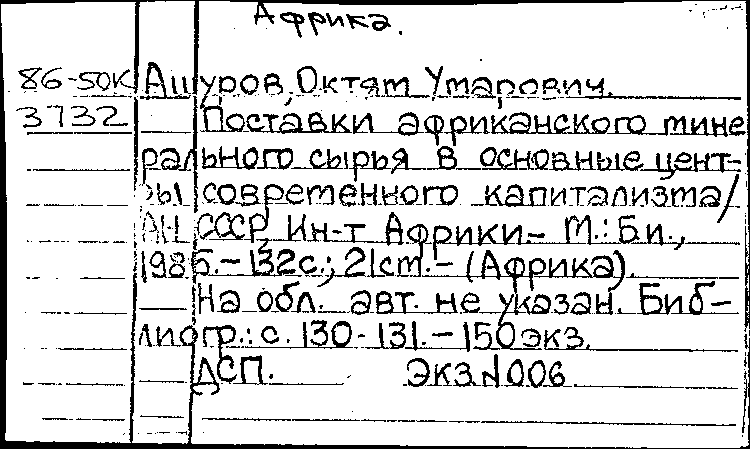 Африка.
86-50К Ашуров, Октят Умарович.
3732 Поставки африканского мине
рального сырья в основные цент-
ры современного капитализма/
АН СССР, Ин-т Африки.- М.: Б.и.,
1985.- 132с.; 21см.- (Африка).
На обл. авт. не указан. Биб-
лиогр.: с. 130-131.- 150экз.
ДСП. Экз.N006.